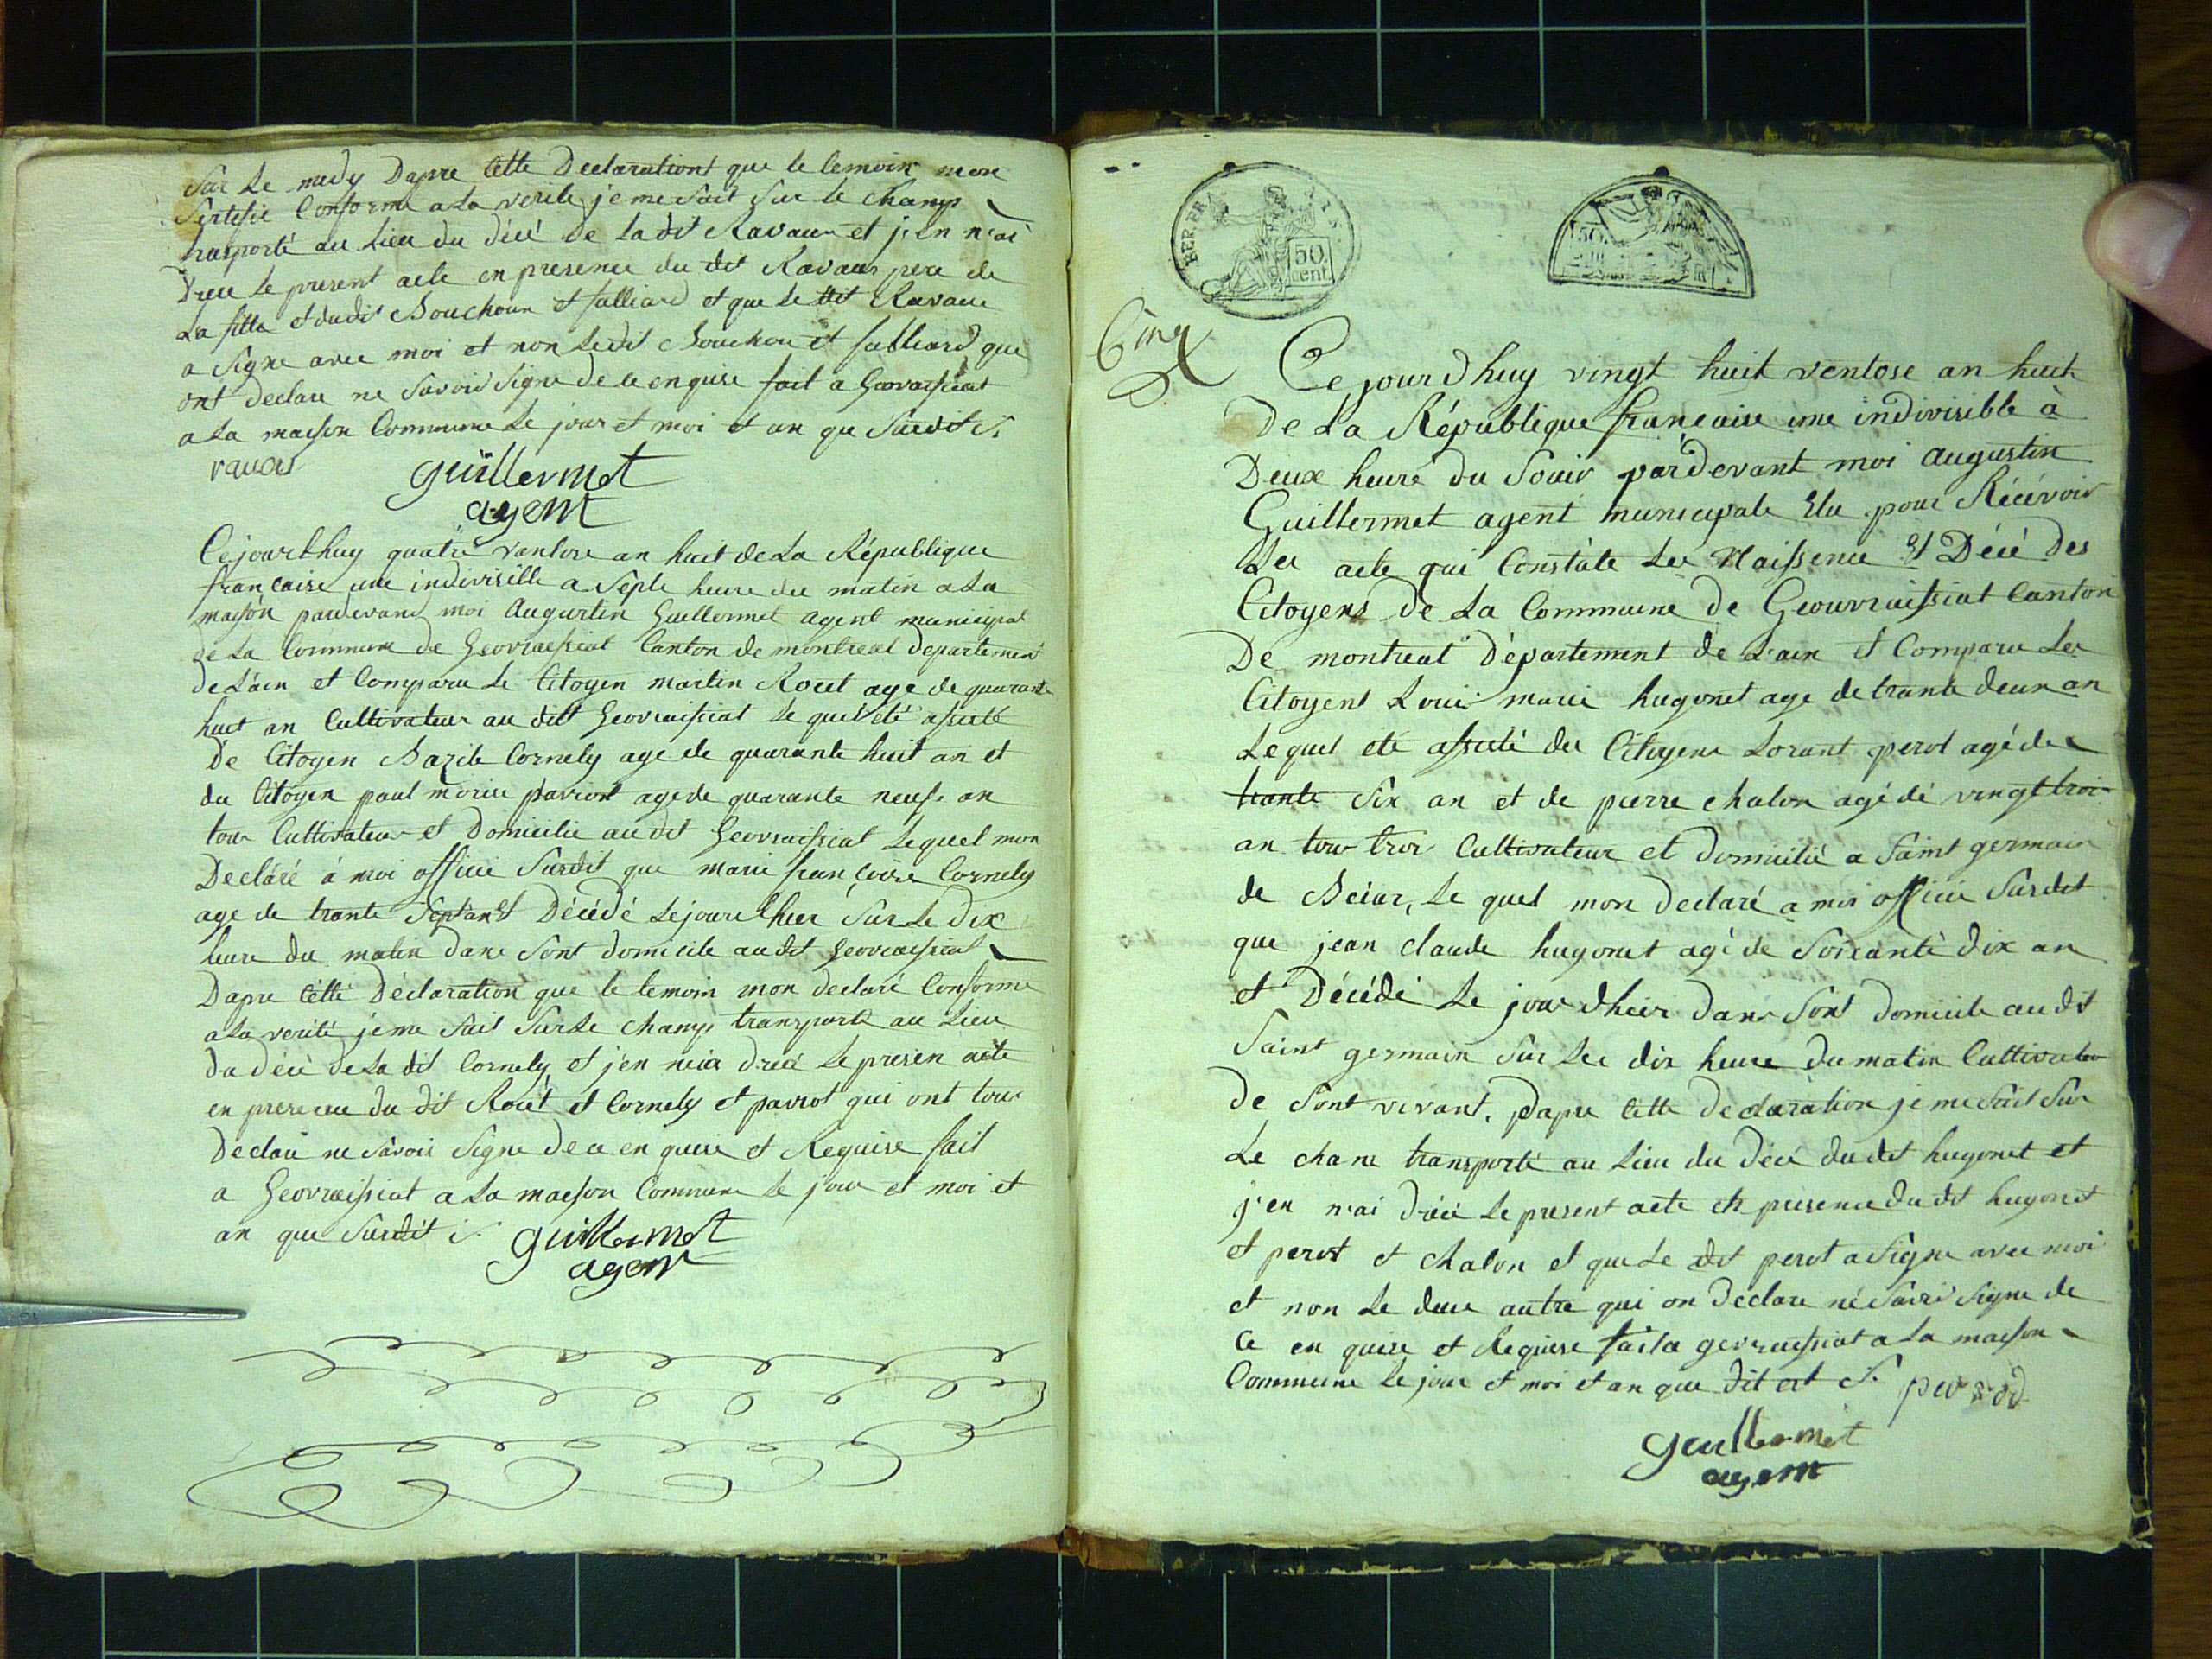 Sur Le midy Dapre Cette Declarationt que le temoin mon
Sertefie Conforme a La verite je me Suit Sur Le Champ
trasporté au Lieu du décé de La dit Ravaur et j'en n'ai
Dréce Le present acte en presence du dit Ravaur pere de
La fille et dudit Bouchour et falliard et que Le dit Ravaur
a Signe avec moi et non Ledit Bouchour et falliard que
ont declare ne Savoir Signe de ce enquise fait a Geovraissiat
a La maison Commune Le jour et moi et an que Surdit S.
ravaur guillermet
agent
Cejourdhuy quatre vantose an huit de La République
francaise une indivisible a Septe heure du matin a La
maison pardevant moi Augustin Guillermet agent municipal
de La Commune de Geovraissiat Canton de montreal departement
de L'ain et Comparu Le Citoyen martin Rouet age de quarante
huit an Cultivateur au dit Geovraissiat Le quel été assisté
De Citoyen Bazile Cornely age de quarante huit an et
du Citoyen paul morice pavrot age de quarante neuf an
tour Cultivateur et Domicilie au dit Geovraissiat Le quel mon
Declaré à moi officie Surdit que marie françoise Cornely
age de trante Septan et Décédé Lejour dhier Sur Le Dix
heure du matin dans Sont domicile au dit Geovraissiat
Dapre Cétte Déclaration que le temoin mon declaré Conforme
a La verité je me Suit Sur Le champ transporte au Lieu
du déce de La dit Cornely et j'en n'ai drécé Le presen acte
en presence du dit Rouet et Cornely et pavrot qui ont tour
Declaré ne Savoir Signe de ce en quise et Requise fait
a Geovraissiat a La maison Commune Le jour et moi et
an que Surdit S. guillermet
agent
Cinq
REP FRA
50
cent
50
Ce jourdhuy vingt huit ventose an huit
De La République francaise une indivisible à
Deux heure du Soir pardevant moi augustin
Guillermet agent municipale Elu pour Récévoir
Les acte qui Constate Les Naissence et Décé Des
Citoyens de La Commune de Geouvraissiat Canton
De montreal Département de L'ain et Comparu Les
Citoyent Louis marie hugonet age de trante deux an
Le quel eté assisté du Citoyene Lorant perot agé de
trante Six an et de pierre chalon agé dé vingt troi
an tour troi Cultivateur et domicilié a Saint germain
de Beiar, Le quel mon declaré a moi officie Surdit
que jean claude hugonet agé de Soixanté dix an
et Décédé Le jour dheir dans Sont domicile audit
Saint germain Sur Les dix heure du matin Cultivateur
De Sont vivant. Dapre Cette declaration je me Suit Sur
Le chanp transporté au Lieu du décé du dit hugonet et
j'en n'ai drécé Le present acte en presence du dit hugonet
et perot et chalon et que Le dit perot a Signe avec moi
et non Le deux autre qui on Déclare né Savoir Signe de
Ce en quise et Requise fait a gevraissiat a La maison
Commune Le jour et moi et an que dit est S. perrod
guillermet
agent